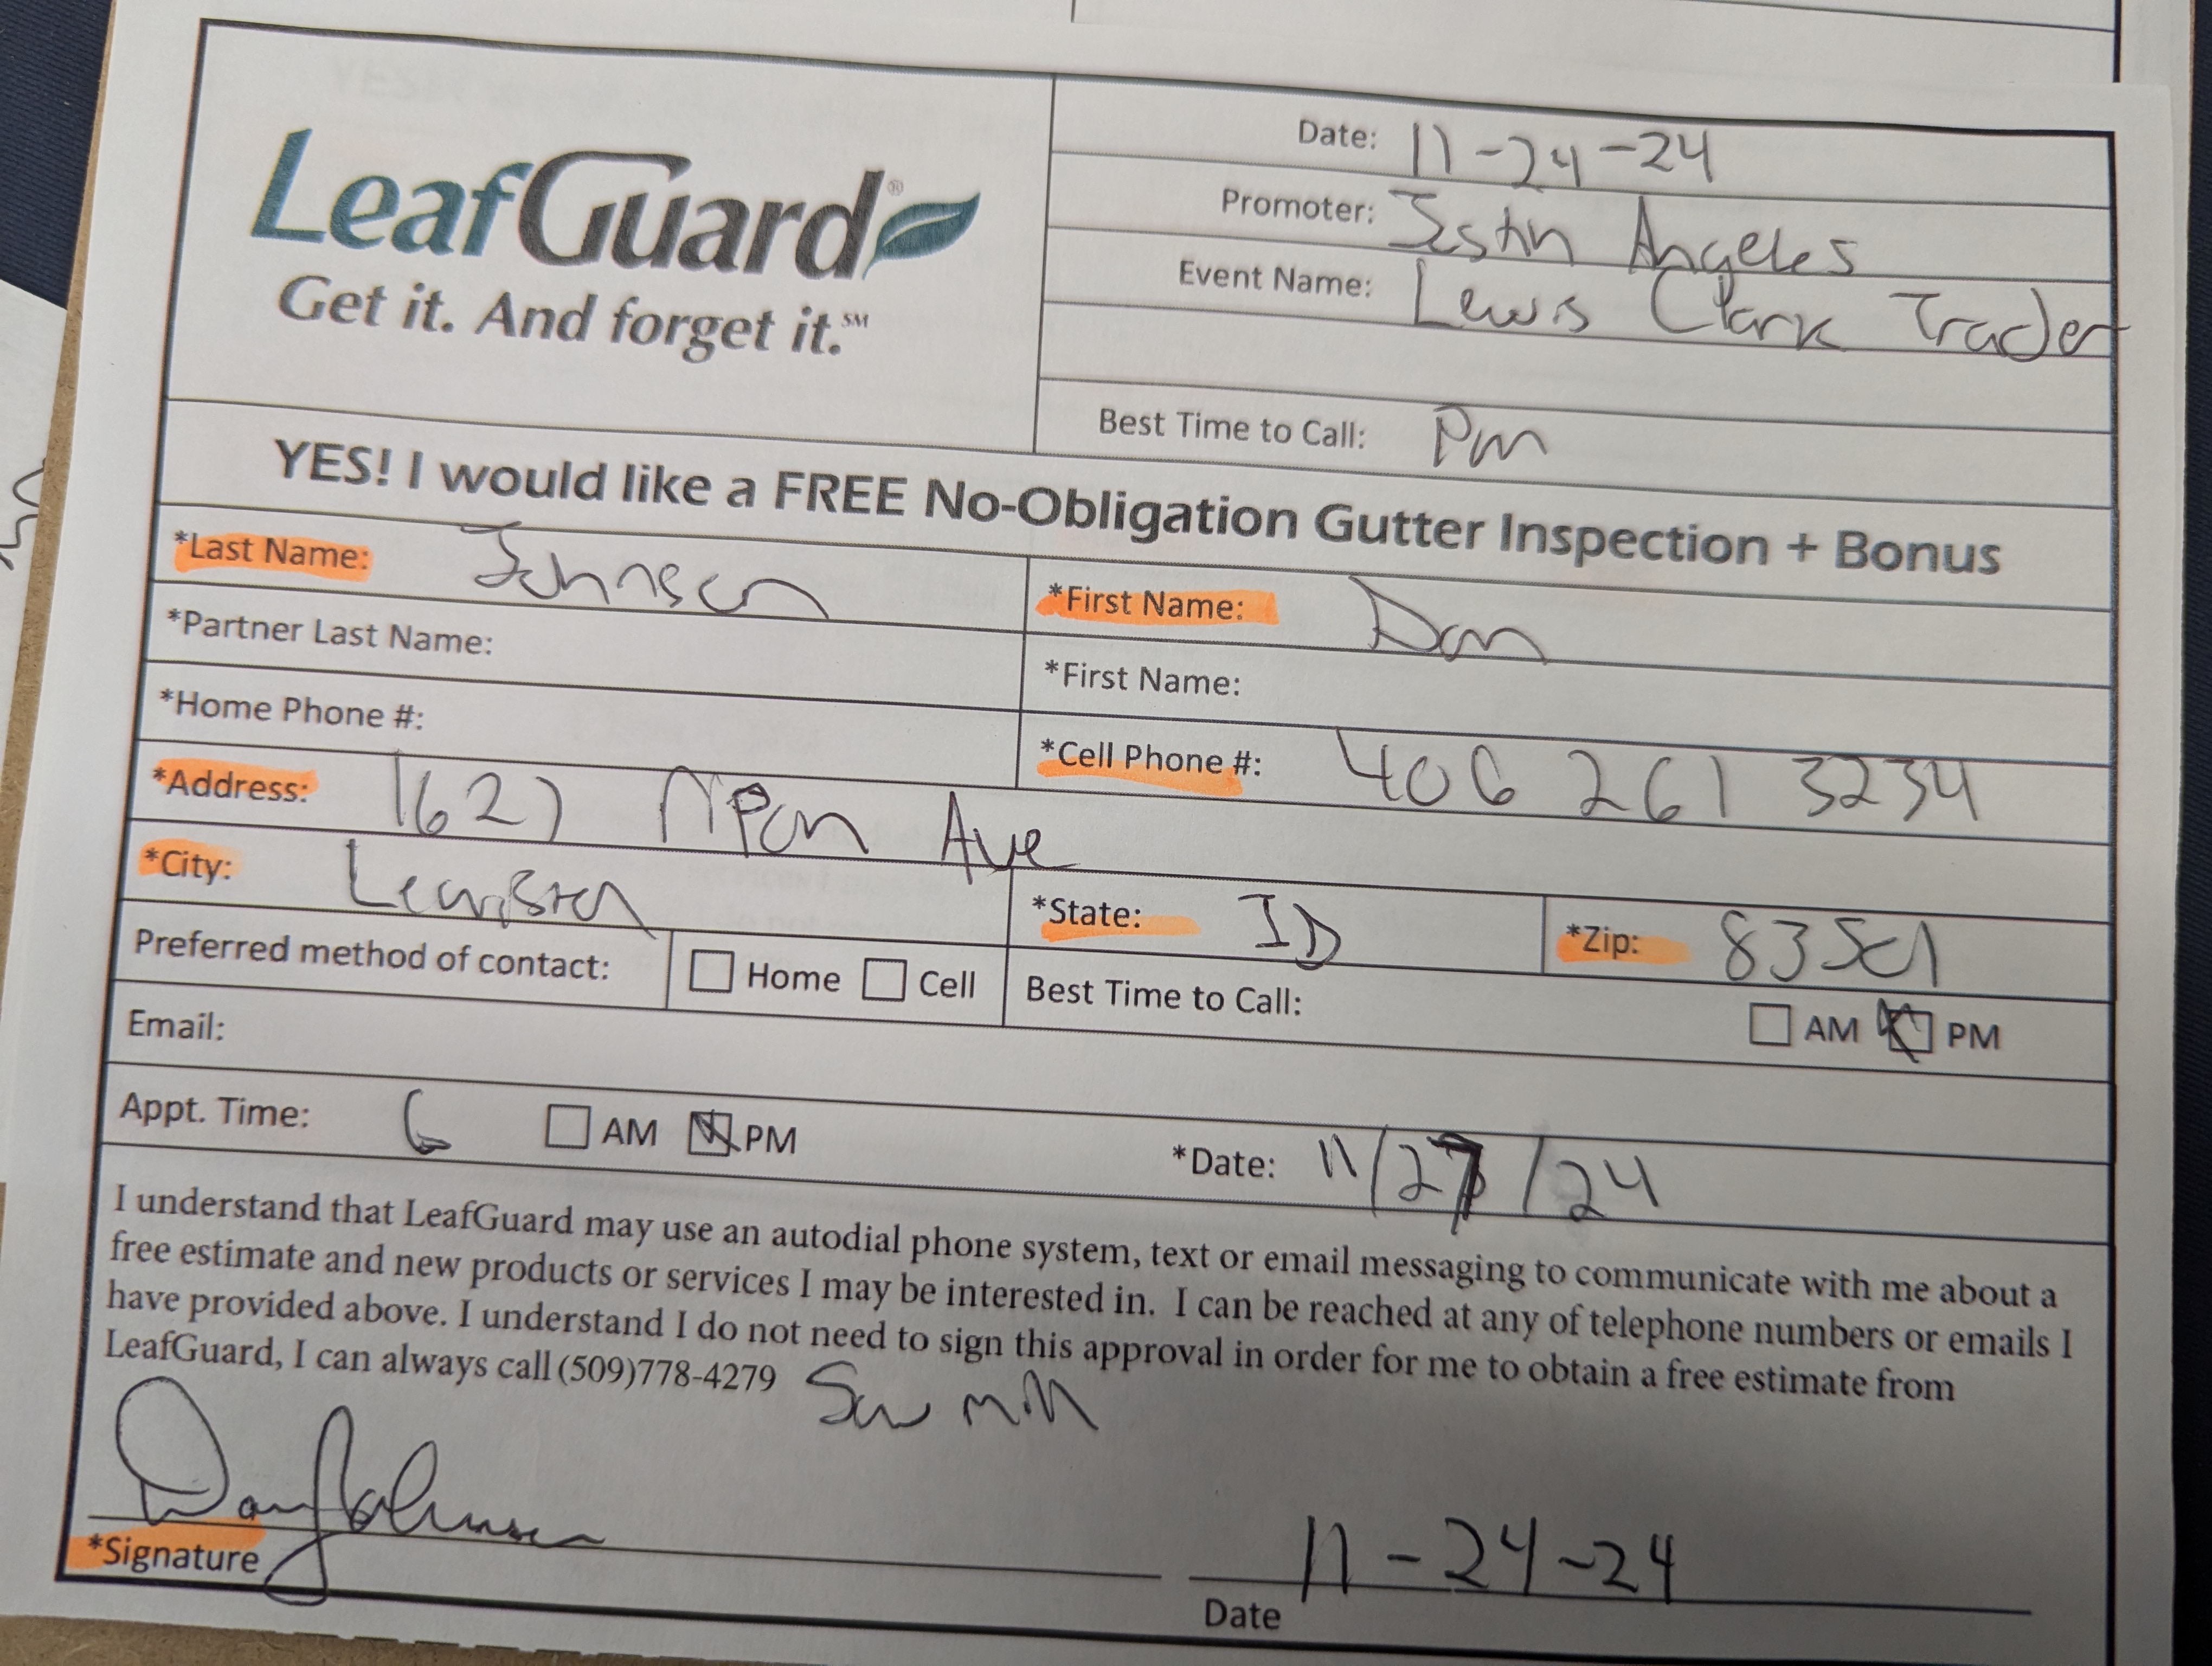 LeafGuard®
Get it. And forget it.℠
Date: 11-24-24
Promoter: Justin Angeles
Event Name: Lewis Clark Trader
Best Time to Call: Pm
YES! I would like a FREE No-Obligation Gutter Inspection + Bonus
*Last Name: Johnson
*First Name: Dan
*Partner Last Name:
*First Name:
*Home Phone #:
*Cell Phone #: 406 261 3234
*Address: 1627 Ave
*City: Lewiston
*State: ID
*Zip: 83501
Preferred method of contact: Home Cell
Best Time to Call: AM PM
Email:
Appt. Time: 6 AM PM
*Date: 11/27/24
I understand that LeafGuard may use an autodial phone system, text or email messaging to communicate with me about a
free estimate and new products or services I may be interested in. I can be reached at any of telephone numbers or emails I
have provided above. I understand I do not need to sign this approval in order for me to obtain a free estimate from
LeafGuard, I can always call (509)778-4279
Saw mill
*Signature
11-24-24
Date